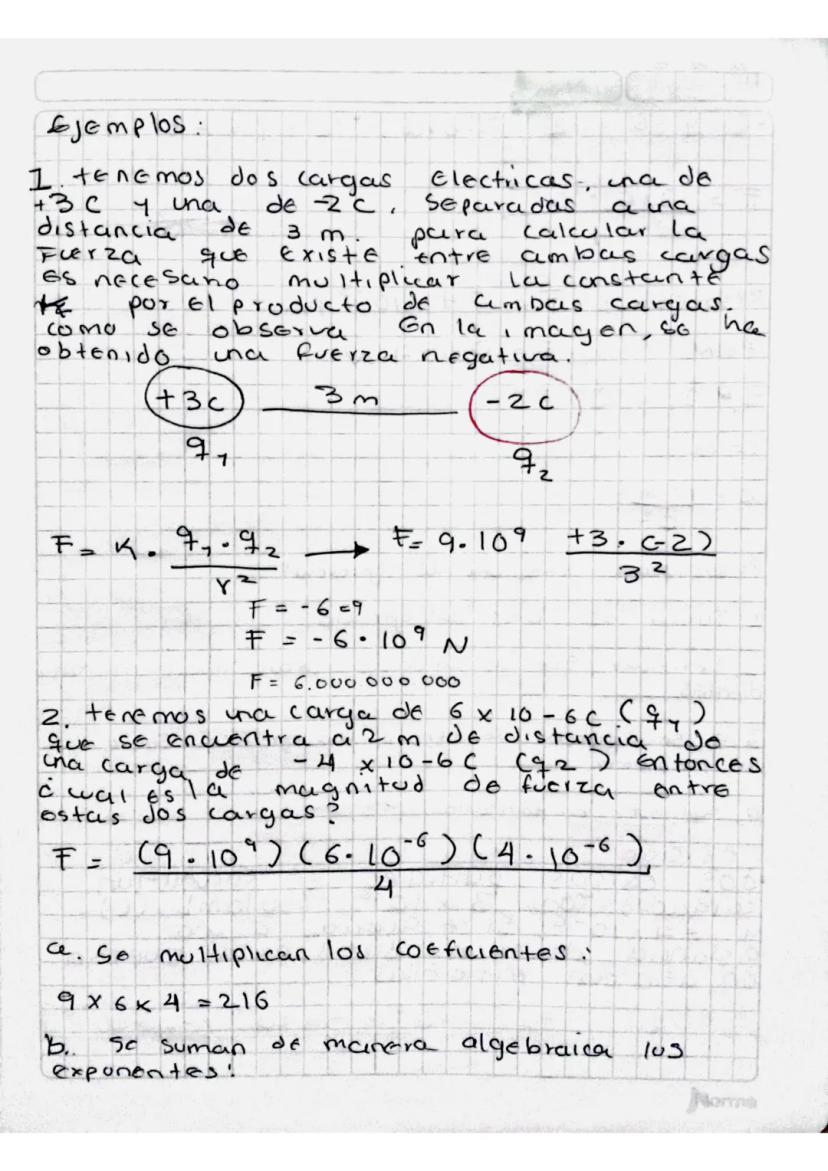 Ejemplos:
1. tenemos dos cargas Electricas, una de
+3C y una de -2C, Separadas a una
distancia de 3 m. para calcular la
Fuerza que Existe entre ambas cargas
es necesario multiplicar la constante
por el producto de ambas cargas.
como se observa En la imagen, se ha
obtenido una fuerza negativa.
+3C 3 m -2C
q1 q2
F = K . q1 . q2 / r² → F= 9.10⁹ +3 . (-2) / 3²
F = -6 e9
F = -6 . 10⁹ N
F = 6.000 000 000
2. tenemos una carga de 6 x 10 - 6C (q1)
que se encuentra a 2 m de distancia de
una carga de -4 x10-6C (q2) Entonces
¿ cual es la magnitud de fuerza entre
estas dos cargas?
F = (9 . 10⁹) (6. 10⁻⁶) (4 . 10⁻⁶) / 4
a. Se multiplican los coeficientes:
9 x 6 x 4 = 216
b. Se suman de manera algebraica los
exponentes:
Norma